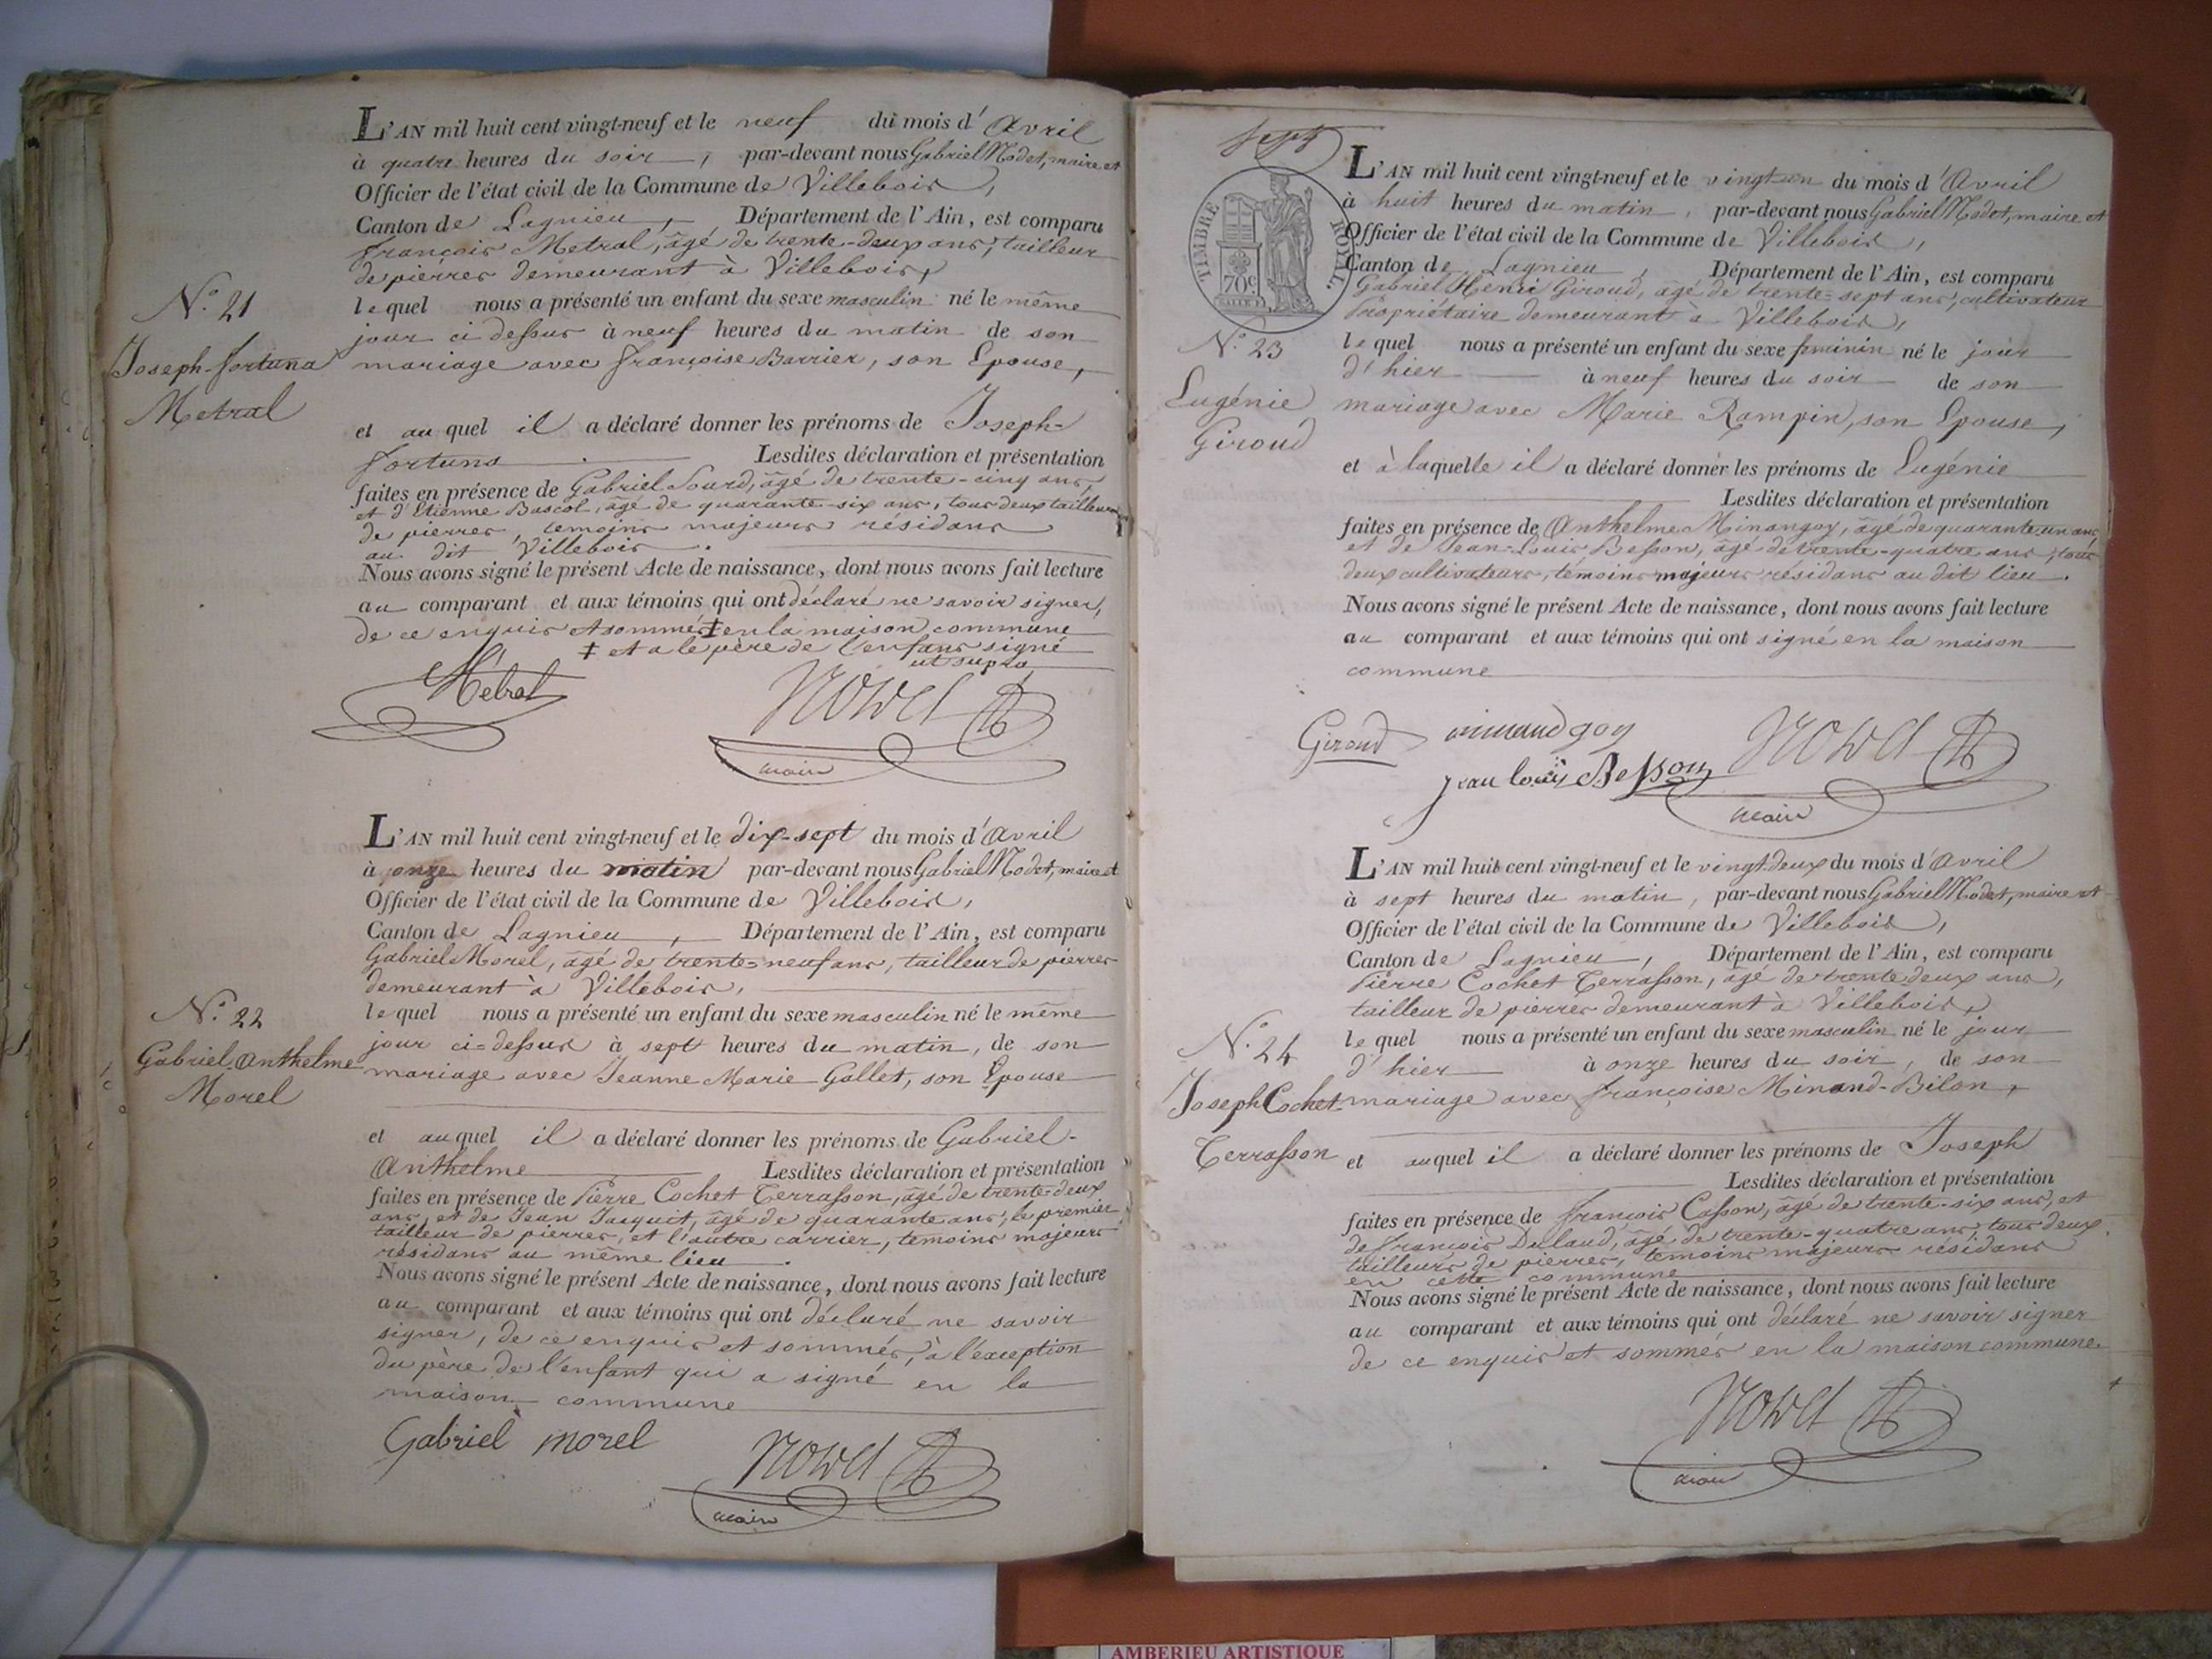 L'AN mil huit cent vingt-neuf et le neuf du mois d'Avril
à quatre heures du soir, par-devant nous Gabriel Nodet, maire et
Officier de l'état civil de la Commune de Villebois,
Canton de Lagnieu, Département de l'Ain, est comparu
françois Metral, âgé de trente-deux ans, tailleur
de pierres demeurant à Villebois,
N.o 21
lequel nous a présenté un enfant du sexe masculin né le même
jour ci dessus à neuf heures du matin de son
Joseph-fortuna
mariage avec françoise Barrier, son Epouse,
Metral
et auquel il a déclaré donner les prénoms de Joseph-
fortuna Lesdites déclaration et présentation
faites en présence de Gabriel Sourd, âgé de trente-cinq ans,
et d'Etienne Bascol, âgé de quarante-six ans, tous deux tailleurs
de pierres, temoins majeurs résidans
au dit Villebois.
Nous avons signé le présent Acte de naissance, dont nous avons fait lecture
au comparant et aux témoins qui ont déclaré ne savoir signer,
de ce enquis et sommés ‡ en la maison commune
‡ et a le père de l'enfant signé
ut supra
Metral
Nodet
maire
L'AN mil huit cent vingt-neuf et le dix-sept du mois d'Avril
à onze heures du matin par-devant nous Gabriel Nodet, maire et
Officier de l'état civil de la Commune de Villebois,
Canton de Lagnieu, Département de l'Ain, est comparu
Gabriel Morel, âgé de trente-neuf ans, tailleur de pierres
demeurant à Villebois,
N.o 22
lequel nous a présenté un enfant du sexe masculin né le même
jour ci-dessus à sept heures du matin, de son
Gabriel Anthelme
mariage avec Jeanne Marie Gallet, son Epouse
Morel
et auquel il a déclaré donner les prénoms de Gabriel-
Anthelme Lesdites déclaration et présentation
faites en présence de Pierre Cochet Terrasson, âgé de trente-deux
ans, et de Jean Jacquit, âgé de quarante ans, le premier
tailleur de pierres, et l'autre carrier, temoins majeurs
résidans au même lieu.
Nous avons signé le présent Acte de naissance, dont nous avons fait lecture
au comparant et aux témoins qui ont déclaré ne savoir
signer, de ce enquis et sommés, à l'exception
du père de l'enfant qui a signé en la
maison commune
Gabriel morel
Nodet
maire
sept
TIMBRE ROYAL.
70c
L'AN mil huit cent vingt-neuf et le vingt-un du mois d'Avril
à huit heures du matin, par-devant nous Gabriel Nodet, maire et
Officier de l'état civil de la Commune de Villebois,
Canton de Lagnieu, Département de l'Ain, est comparu
Gabriel Henri Giroud, âgé de trente-sept ans, cultivateur
Propriétaire demeurant à Villebois,
N.o 23
lequel nous a présenté un enfant du sexe feminin né le jour
d'hier à neuf heures du soir de son
Eugénie
mariage avec Marie Rampin, son Epouse,
Giroud
et à laquelle il a déclaré donner les prénoms de Eugénie
Lesdites déclaration et présentation
faites en présence de Anthelme Minangoy, âgé de quarante-un ans
et de Jean-Louis Besson, âgé de trente-quatre ans, tous
deux cultivateurs, témoins majeurs résidans au dit lieu.
Nous avons signé le présent Acte de naissance, dont nous avons fait lecture
au comparant et aux témoins qui ont signé en la maison
commune
Giroud minandgoy Nodet
jean louis Besson
maire
L'AN mil huit cent vingt-neuf et le vingt-deux du mois d'Avril
à sept heures du matin, par-devant nous Gabriel Nodet, maire et
Officier de l'état civil de la Commune de Villebois,
Canton de Lagnieu, Département de l'Ain, est comparu
Pierre Cochet Terrasson, âgé de trente deux ans,
tailleur de pierres demeurant à Villebois,
N.o 24
lequel nous a présenté un enfant du sexe masculin né le jour
d'hier à onze heures du soir, de son
Joseph Cochet-
mariage avec françoise Minand-Bilon,
Terrasson
et auquel il a déclaré donner les prénoms de Joseph
Lesdites déclaration et présentation
faites en présence de françois Casson, âgé de trente-six ans, et
de françois Dulaud, âgé de trente-quatre ans, tous deux
tailleurs de pierres, temoins majeurs résidans
en cette commune
Nous avons signé le présent Acte de naissance, dont nous avons fait lecture
au comparant et aux témoins qui ont déclaré ne savoir signer
de ce enquis et sommés en la maison commune.
Nodet
maire
AMBERIEU ARTISTIQUE